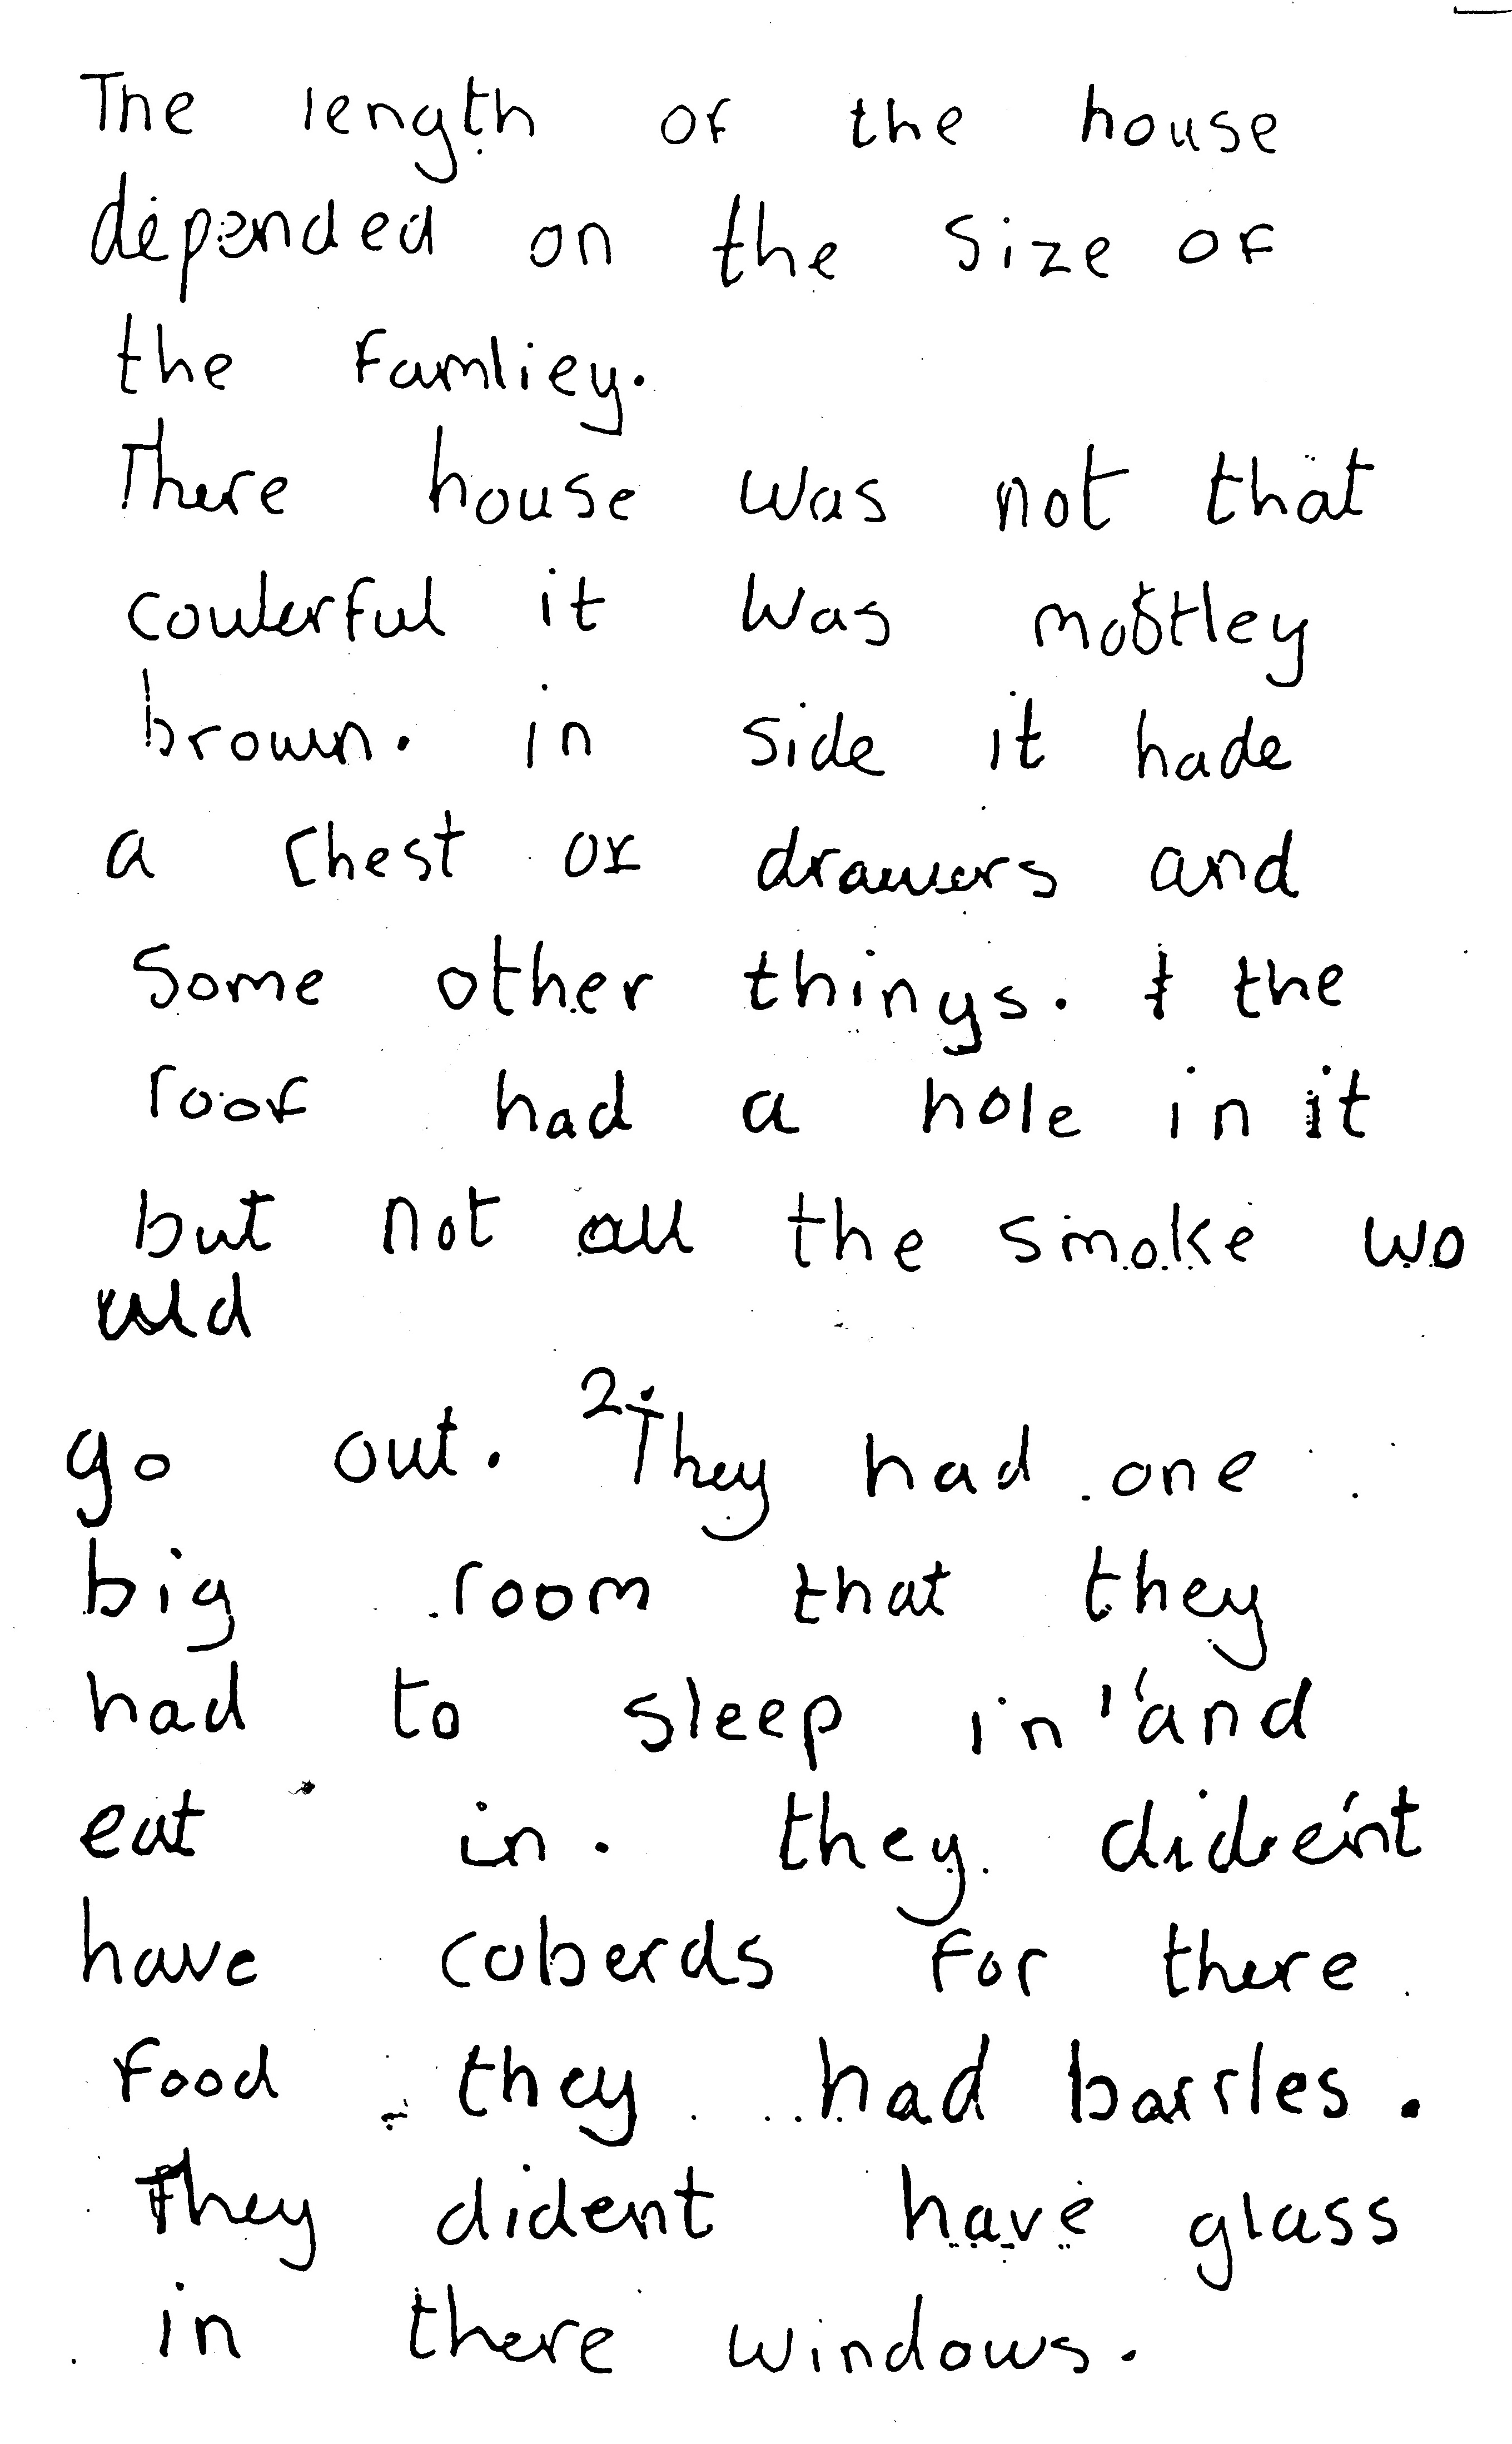 The length of the house
depended on the size of
the Famliey.
There house was not that
coulerful it was mostley
brown. in side it hade
a chest of drawers and
Some other things. the
roof had a hole in it
but not all the smoke wo
uld
go out. 2 They had one
big room that they
had to sleep in and
eat in. they dident
have coberds for there
food they had barrles.
They dident have glass
in there windows.